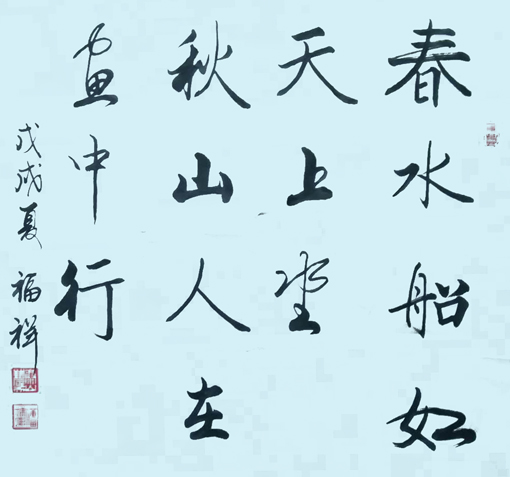 春水船如
天上坐
秋山人在
画中行
戊戌夏 福祥